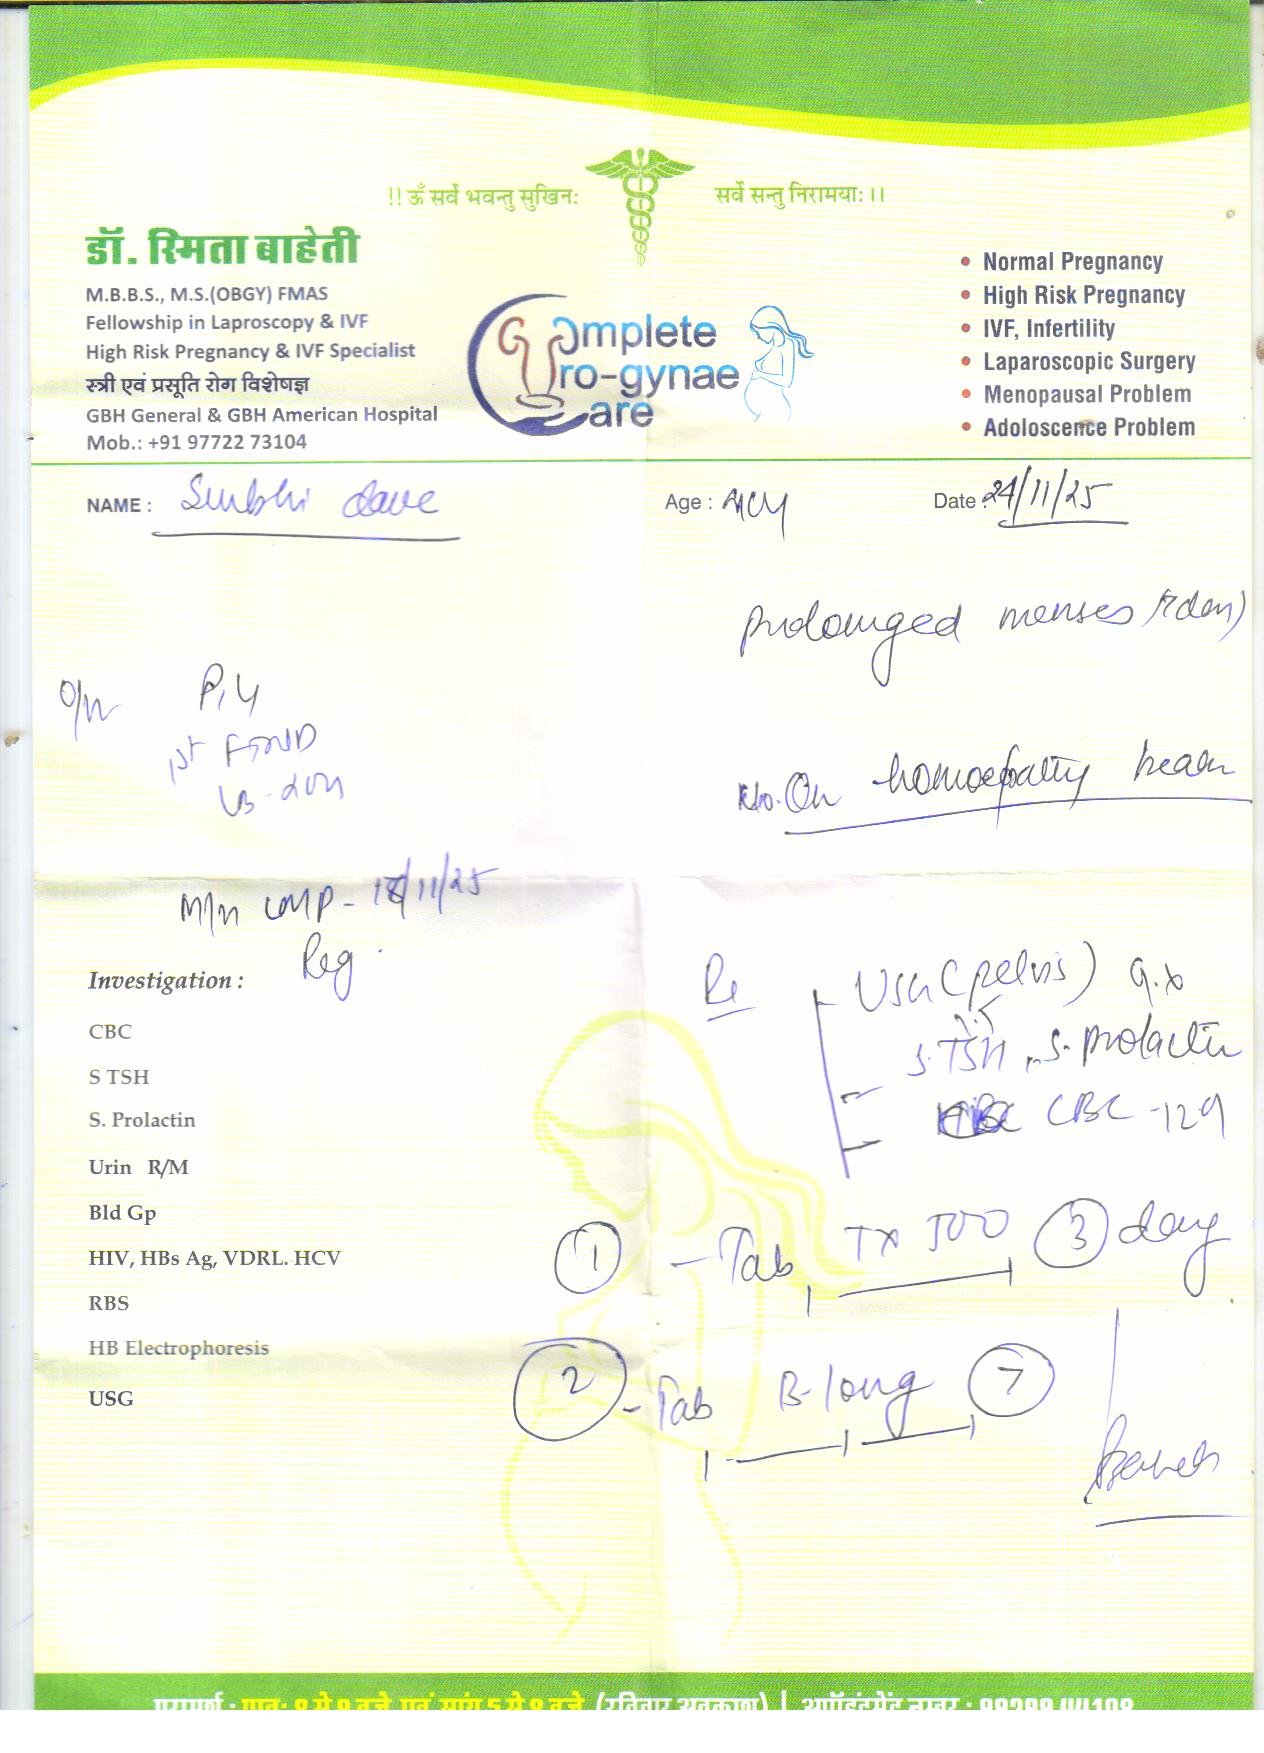 !! ॐ सर्वे भवन्तु सुखिनः सर्वे सन्तु निरामयाः ।।
डॉ. स्मिता बाहेती
M.B.B.S., M.S.(OBGY) FMAS
Fellowship in Laproscopy & IVF
High Risk Pregnancy & IVF Specialist
स्त्री एवं प्रसूति रोग विशेषज्ञ
GBH General & GBH American Hospital
Mob.: +91 97722 73104
Complete
Uro-gynae
Care
• Normal Pregnancy
• High Risk Pregnancy
• IVF, Infertility
• Laparoscopic Surgery
• Menopausal Problem
• Adoloscence Problem
NAME : Surbhi dave
Age :
Date : 24/11/25
prolonged menses
P1L1
1st FTND
On homoepathy
LMP - 18/11/25
Reg
Investigation :
CBC
S TSH
S. Prolactin
Urin R/M
Bld Gp
HIV, HBs Ag, VDRL. HCV
RBS
HB Electrophoresis
USG
USG (pelvis)
S. TSH, S. prolactin
CBC
① - Tab TX 500 ③ days
② - Tab B-long ⑦